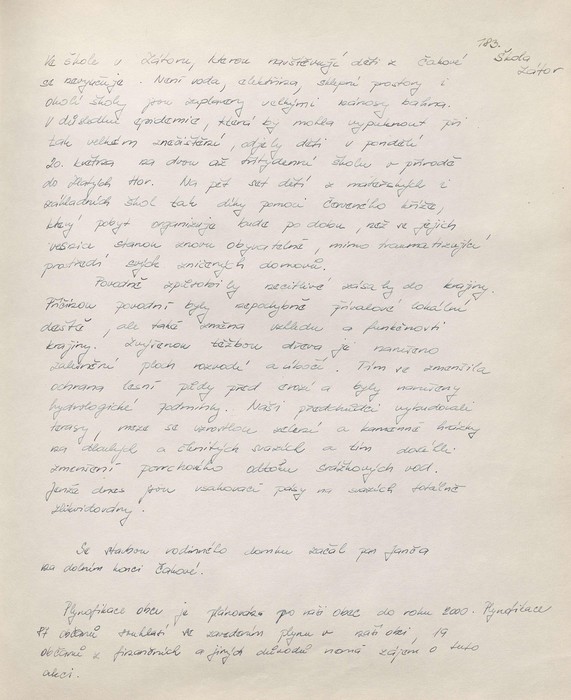 183.
Škola
Zátor
Ve škole v Zátoru, kterou navštěvují děti z Čakové
se nevyučuje. Není voda, elektřina, sklepní prostory i
okolí školy jsou zaplaveny velkými nánosy bahna.
V důsledku epidemie, která by mohla vypuknout při
tak velkém znečištění, odjely děti v pondělí
20. května na dvou až třítýdenní školu v přírodě
do Zlatých Hor. Na pět set dětí z mateřských i
základních škol tak díky pomoci Červeného kříže,
který pobyt organizuje bude po dobu, než se jejich
vesnice stanou znovu obyvatelné, mimo traumatizující
prostředí svých zničených domovů.
Povodně způsobily necitlivé zásahy do krajiny.
Příčinou povodní byly nepochybně přívalové lokální
deště, ale také změna vzhledu a funkčnosti
krajiny. Zvýšenou těžbou dřeva je narušeno
zalesnění ploch rozvodí a úbočí. Tím se zmenšila
ochrana lesní půdy před erozí a byly narušeny
hydrologické podmínky. Naši předchůdci vybudovali
terasy, meze se vzrostlou zelení a kamenné hrázky
na dlouhých a členitých svazích a tím docílili
zmenšení povrchového odtoku srážkových vod.
Jenže dnes jsou vsakovací pásy na svazích totálně
zlikvidovány.
Se stavbou rodinného domku začal pan Janča
na dolním konci Čakové.
Plynofikace obcí je plánována pro naši obec do roku 2000. Plynofikace
87 občanů souhlasí se zavedením plynu v naší obci, 19
občanů z finančních a jiných důvodů nemá zájem o tuto
akci.